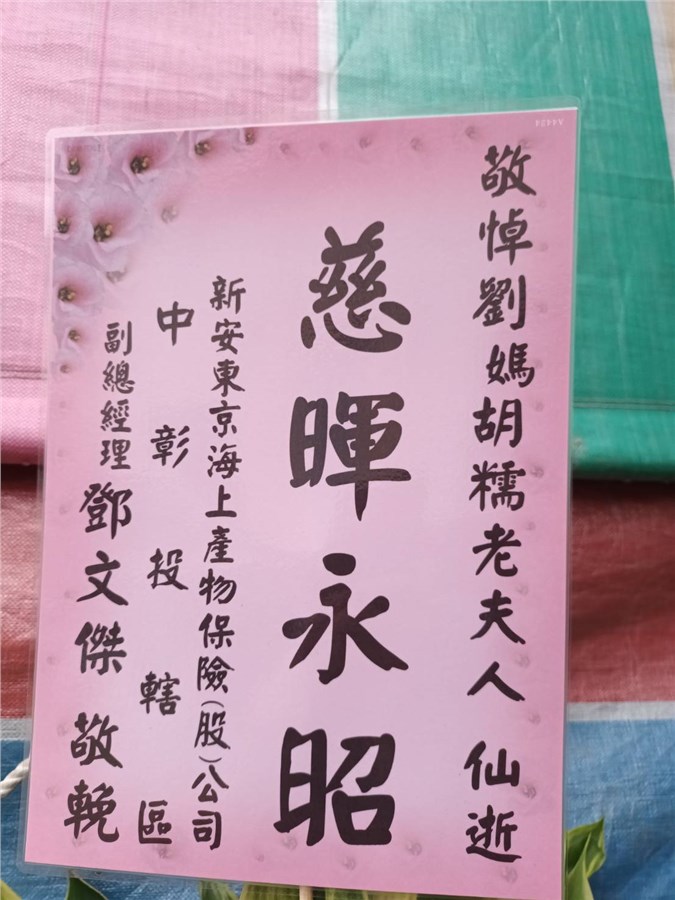 敬悼劉媽胡糯老夫人 仙逝
慈暉永昭
新安東京海上產物保險(股)公司
中彰投轄區
副總經理 鄧文傑 敬輓